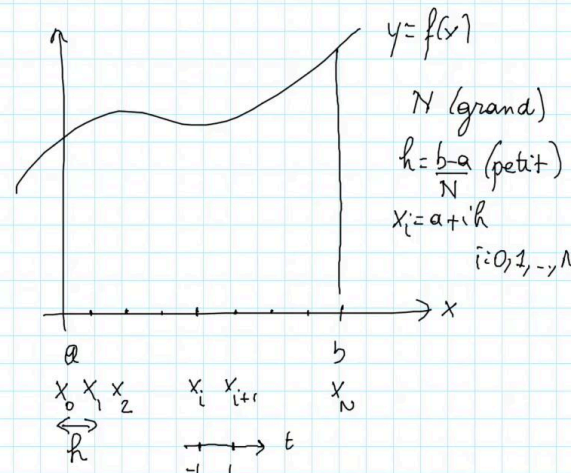 y = f(x)
N (grand)
h = b-a/N (petit)
x_i = a + ih
i=0,1,..,N
x
a b
x_0 x_1 x_2 x_i x_{i+1} x_N
h
t
-1 1